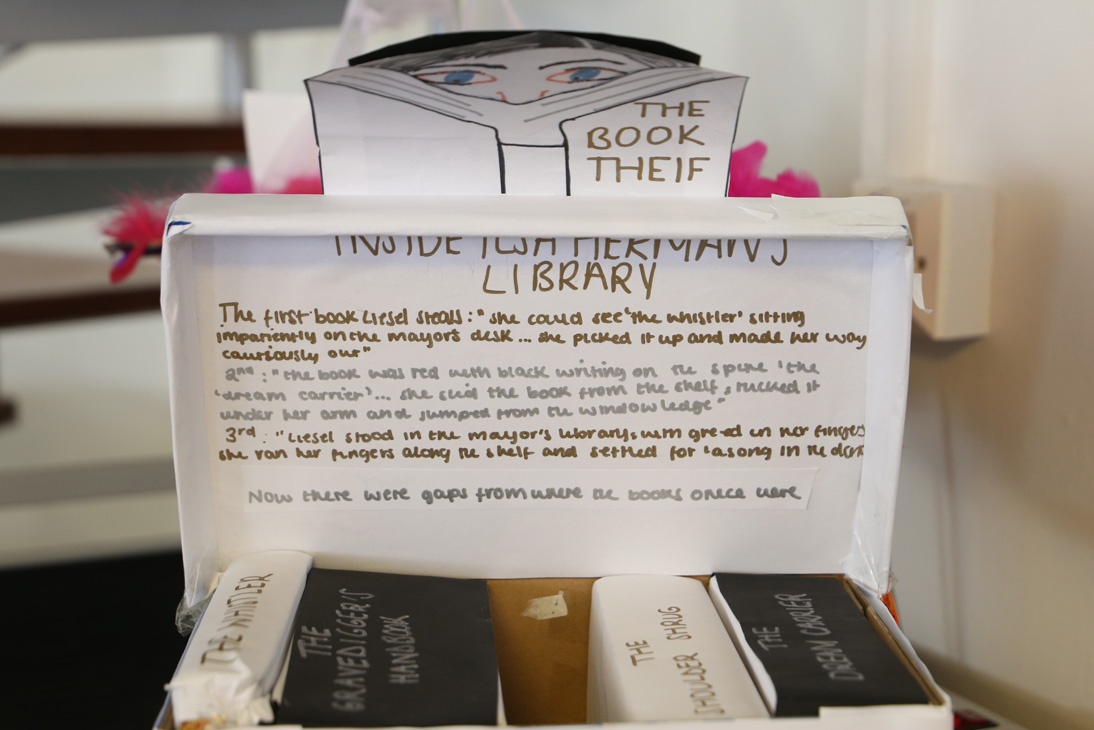 THE
BOOK
THEIF
INSIDE ILSA HERMAN'S
LIBRARY
The first book Liesel steals: "she could see 'the whistler' sitting
impatiently on the mayor's desk... she picked it up and made her way
cautiously out"
2nd: "the book was red with black writing on the spine 'the
dream carrier'... she slid the book from the shelf, tucked it
under her arm and jumped from the window ledge"
3rd: "Liesel stood in the mayor's library with greed in her fingers
she ran her fingers along the shelf and settled for 'a song in the dark
Now there were gaps from where the books onece were
THE WHISTLER
THE
GRAVEDIGGER'S
HANDBOOK
THE
SHOULDER SHRUG
THE
DREAM CARRIER